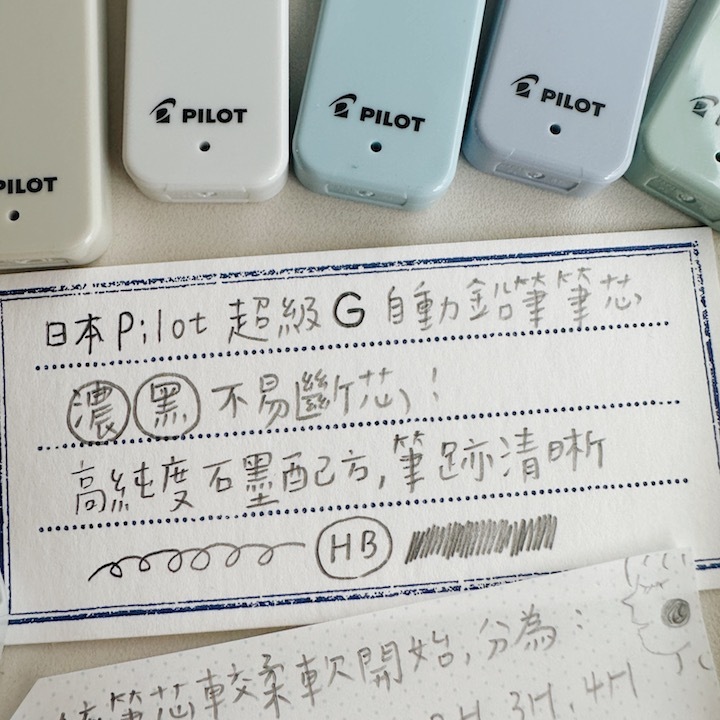 PILOT
PILOT
PILOT
PILOT
日本 Pilot 超級 G 自動鉛筆筆芯
濃 黑 不易斷芯!
高純度石墨配方,筆跡清晰
HB
筆芯較柔軟開始,分為:
3H、4H